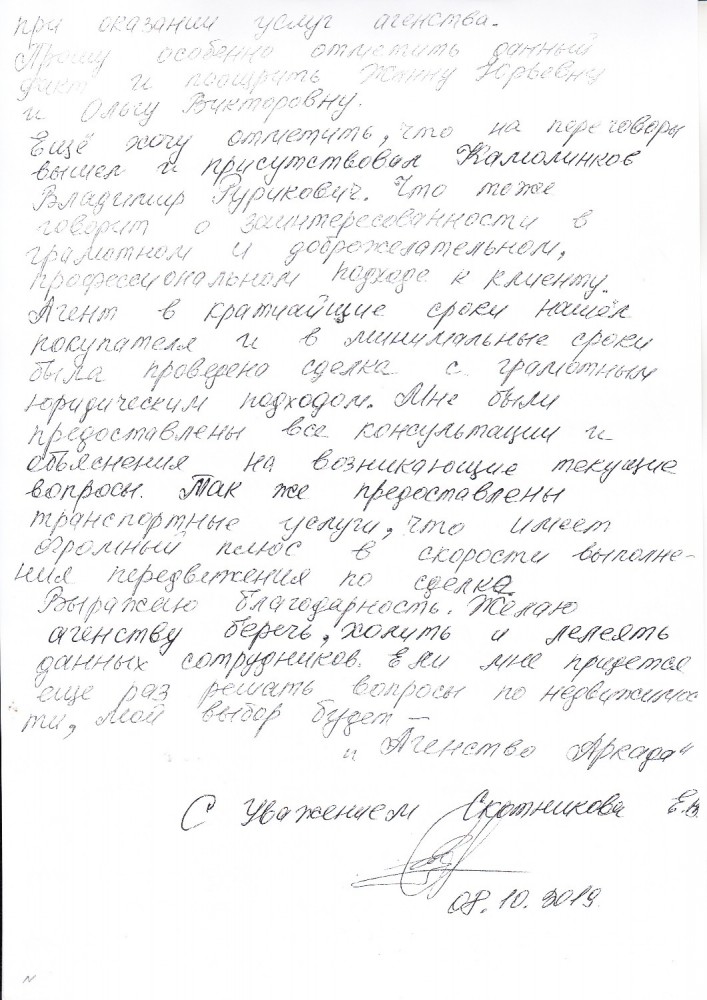 при оказании услуг агенства.
Прошу особенно отметить данный
факт и поощрить Жанну Юрьевну
и Ольгу Викторовну.
Ещё хочу отметить, что на переговоры
вышел и присутствовал Камолинков
Владимир Рурикович. Что тоже
говорит о заинтересованности в
грамотном и доброжелательном,
профессиональном подходе к клиенту.
Агент в кратчайщие сроки нашёл
покупателя и в минимальные сроки
была проведена сделка с грамотным
юридическим подходом. Мне были
предоставлены все консультации и
объяснения на возникающие текущие
вопросы. Так же предоставлены
транспортные услуги, что имеет
огромный плюс в скорости выполне-
ния передвижения по сделке.
Выражаю благодарность. Желаю
агенству беречь, холить и лелеять
данных сотрудников. Если мне придется
еще раз решать вопросы по недвижимос
ти, мой выбор будет —
"Агенство Аркада"
С Уважением Скотникова Е.В.
08.10.2019